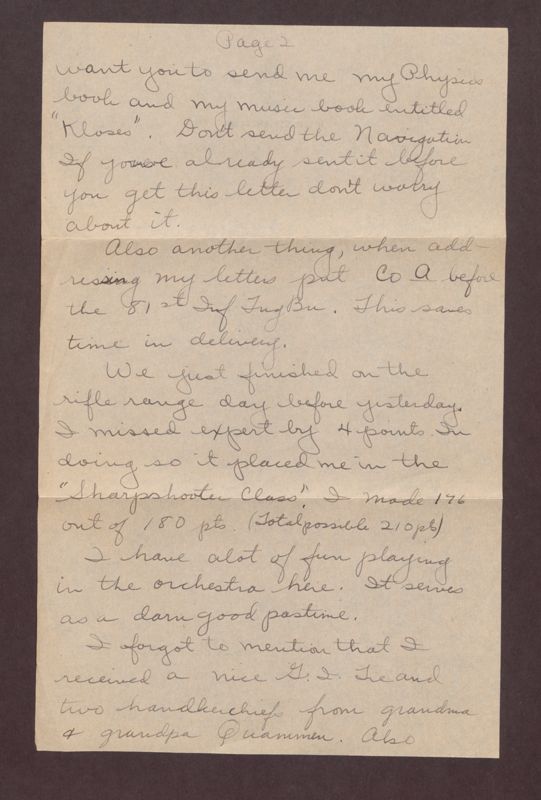 Page 2
want you to send me my Physics
book and my music book entitled
"Kloses". Don't send the Navigation
If youve already sent it before
you get this letter don't worry
about it.
Also another thing, when add-
ressing my letters put Co A before
the 81st Inf Trng Bn. This saves
time in delivery.
We just finished on the
rifle range day before yesterday.
I missed expert by 4 points. In
doing so it placed me in the
"Sharpshooter Class". I made 176
out of 180 pts. (Total possible 210 pts)
I have alot of fun playing
in the orchestra here. It serves
as a darn good pastime.
I forgot to mention that I
received a nice G.I. Tie and
two handkerchiefs from grandma
& grandpa Quammen. Also